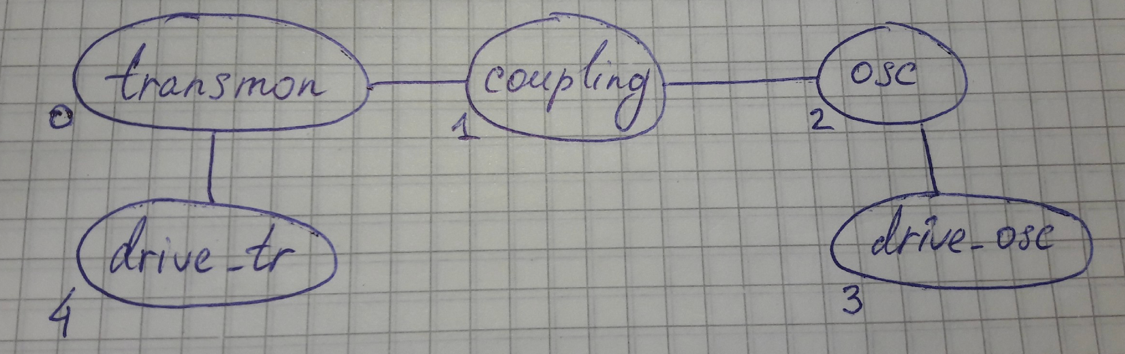 transmon coupling osc
0 1 2
drive_tr drive_osc
4 3